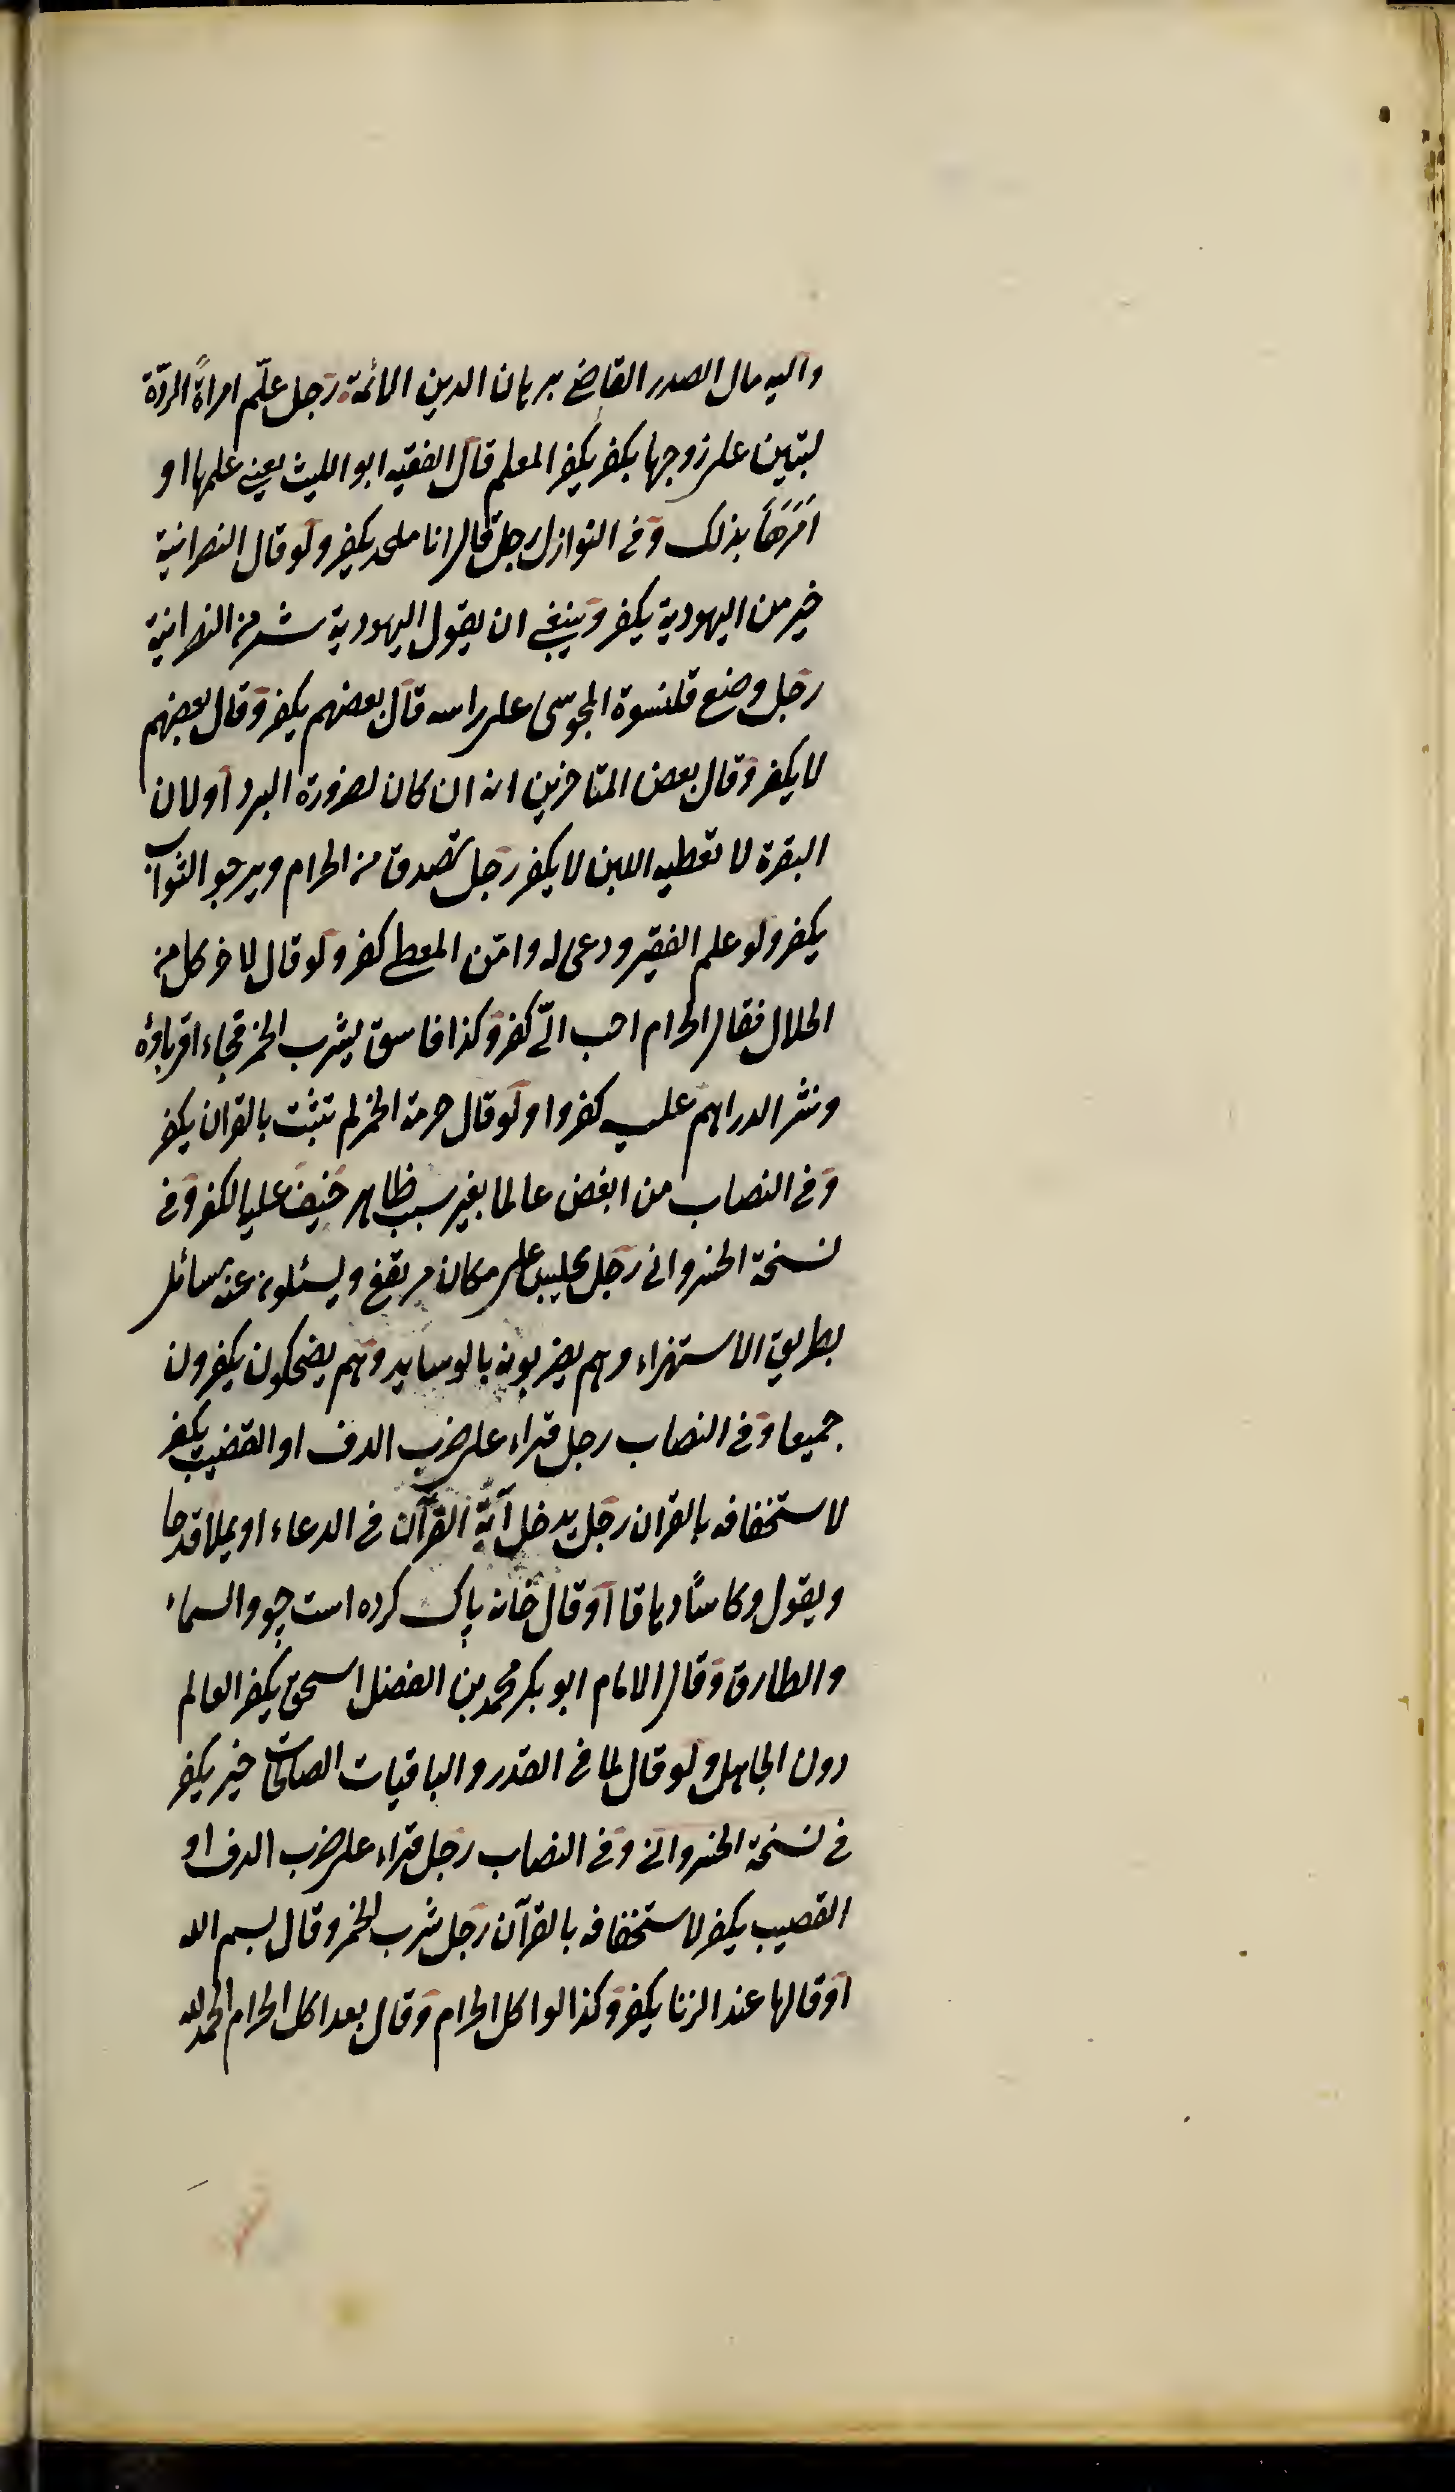 واليه مال الصدر القاضي برهان الدين الائمة رجل علّم امراةً الردّة
لتبين على زوجها بكفر يكفر المعلم قال الفقيه ابو الليث يعني علمها او
اَمَرَهَا بذلك وفي النوازل رجل قال انا ملحد يكفر ولو قال النصرانية
خير من اليهودية يكفر وينبغي ان يقول اليهودية شر من النصرانية
رجل وضع قلنسوة المجوسي على راسه قال بعضهم يكفر وقال بعضهم
لا يكفر وقال بعض المتاخرين انه ان كان لضرورة البرد او لان
البقرة لا تعطيه اللبن لا يكفر رجل تصدق من الحرام ويرجو الثواب
يكفر ولو علم الفقير ودعى له وامّن المعطي كفر ولو قال لاخر كل من
الحلال فقال الحرام احب الىّ كفر وكذا فاسق يشرب الخمر فجاء اقرباؤه
ونثر الدراهم عليه كفروا ولو قال حرمة الخمر لم تثبت بالقران يكفر
وفي النصاب من ابغض عالما بغير سبب ظاهر خيف عليه الكفر وفي
نسخة الخسرواني رجل يجلس على مكان مرتفع ويسئلون عنه مسائل
بطريق الاستهزاء وهم يضربونه بالوسايد وهم يضحكون يكفرون
جميعا وفي النصاب رجل قراء على ضرب الدف او القضيب يكفر
لاستخفافه بالقران رجل يدخل آية القرآن في الدعاء او يملا قدحا
ويقول وكاسًا دهاقا او قال خانه پاك كرده است چو والسماء
والطارق وقال الامام ابو بكر محمد بن الفضل اسحق يكفر العالم
دون الجاهل ولو قال لما في القدر والباقيات الصالحات خير يكفر
في نسخة الخسرواني وفي النصاب رجل قراء على ضرب الدف او
القصيب يكفر لاستخفافه بالقرآن رجل شرب الخمر وقال بسم الله
او قالها عند الزنا يكفر وكذا لو اكل الحرام وقال بعد اكل الحرام الحمد لله